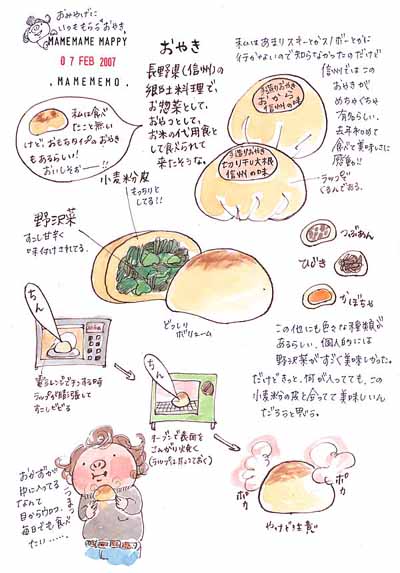 おみやげに
いつももらうおやき。
MAMEMAME MAPPY
07 FEB 2007
.MAMEMEMO.
おやき
長野県(信州)の
郷土料理で、
お惣菜として、
おやつとして、
お米の代用食と
して食べられて
来たそうな。
私は食べ
たこと無い
けど、おもちタイプのおやき
もあるらしい!
おいしそおーー!!
私はあまりスキーとかスノボーとかに
行かないので知らなかったのだけど
信州ではこの
おやきが
めちゃくちゃ
有名らしい。
去年初めて
食べて美味しさに
感動!!
手造りおやき
おから
信州の味
手造りおやき
切り干大根
信州の味
ラップで
くるんである。
小麦粉皮
もっちりと
してる!!
野沢菜
すこし甘辛く
味付けされてる。
どっしり
ボリューム
つぶあん
ひじき
かぼちゃ
この他にも色々な種類が
あるらしい。個人的には
野沢菜がすごく美味しかった。
だけどきっと、何が入ってても、この
小麦粉の皮と合ってて美味しいん
だろうなと思う。
ちん
電子レンジでチンする時
ラップが膨張して
すこしビビる
ちん
オーブンで表面を
こんがり焼く
(ラップはとっておく)
おかずが
中に入ってる
なんて
目からウロコ。
毎日でも食べ
たい……
うまっ
ポカ
ポカ
やけど注意!